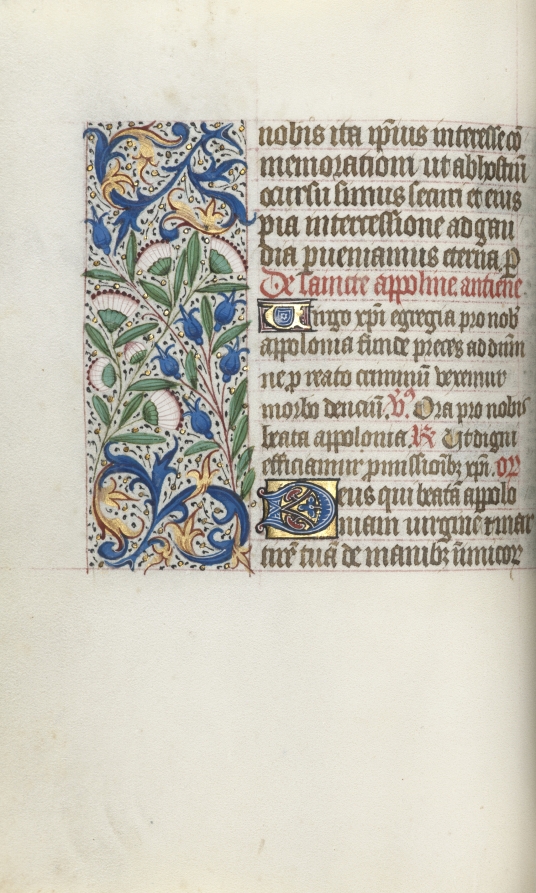 nobis ita ip̄ius interesse cō
memorationi ut ab hostiū
occursu simus securi et eius
pia intercessione ad gau
dia p̄ueniamus eterna P
De saincte appoline antiene
Uirgo xp̄i egregia pro nob̄
appolonia funde preces ad dn̄m
ne p̄ reatu criminū vexemur
morbo denciū. V̄s Ora pro nobis
beata appolonia. R̄ Ut digni
efficiamur p̄missioībꝫ xp̄i. or̄
Deus qui beatā appolo
niam uirginē et mar
tirē tuā de manibꝫ